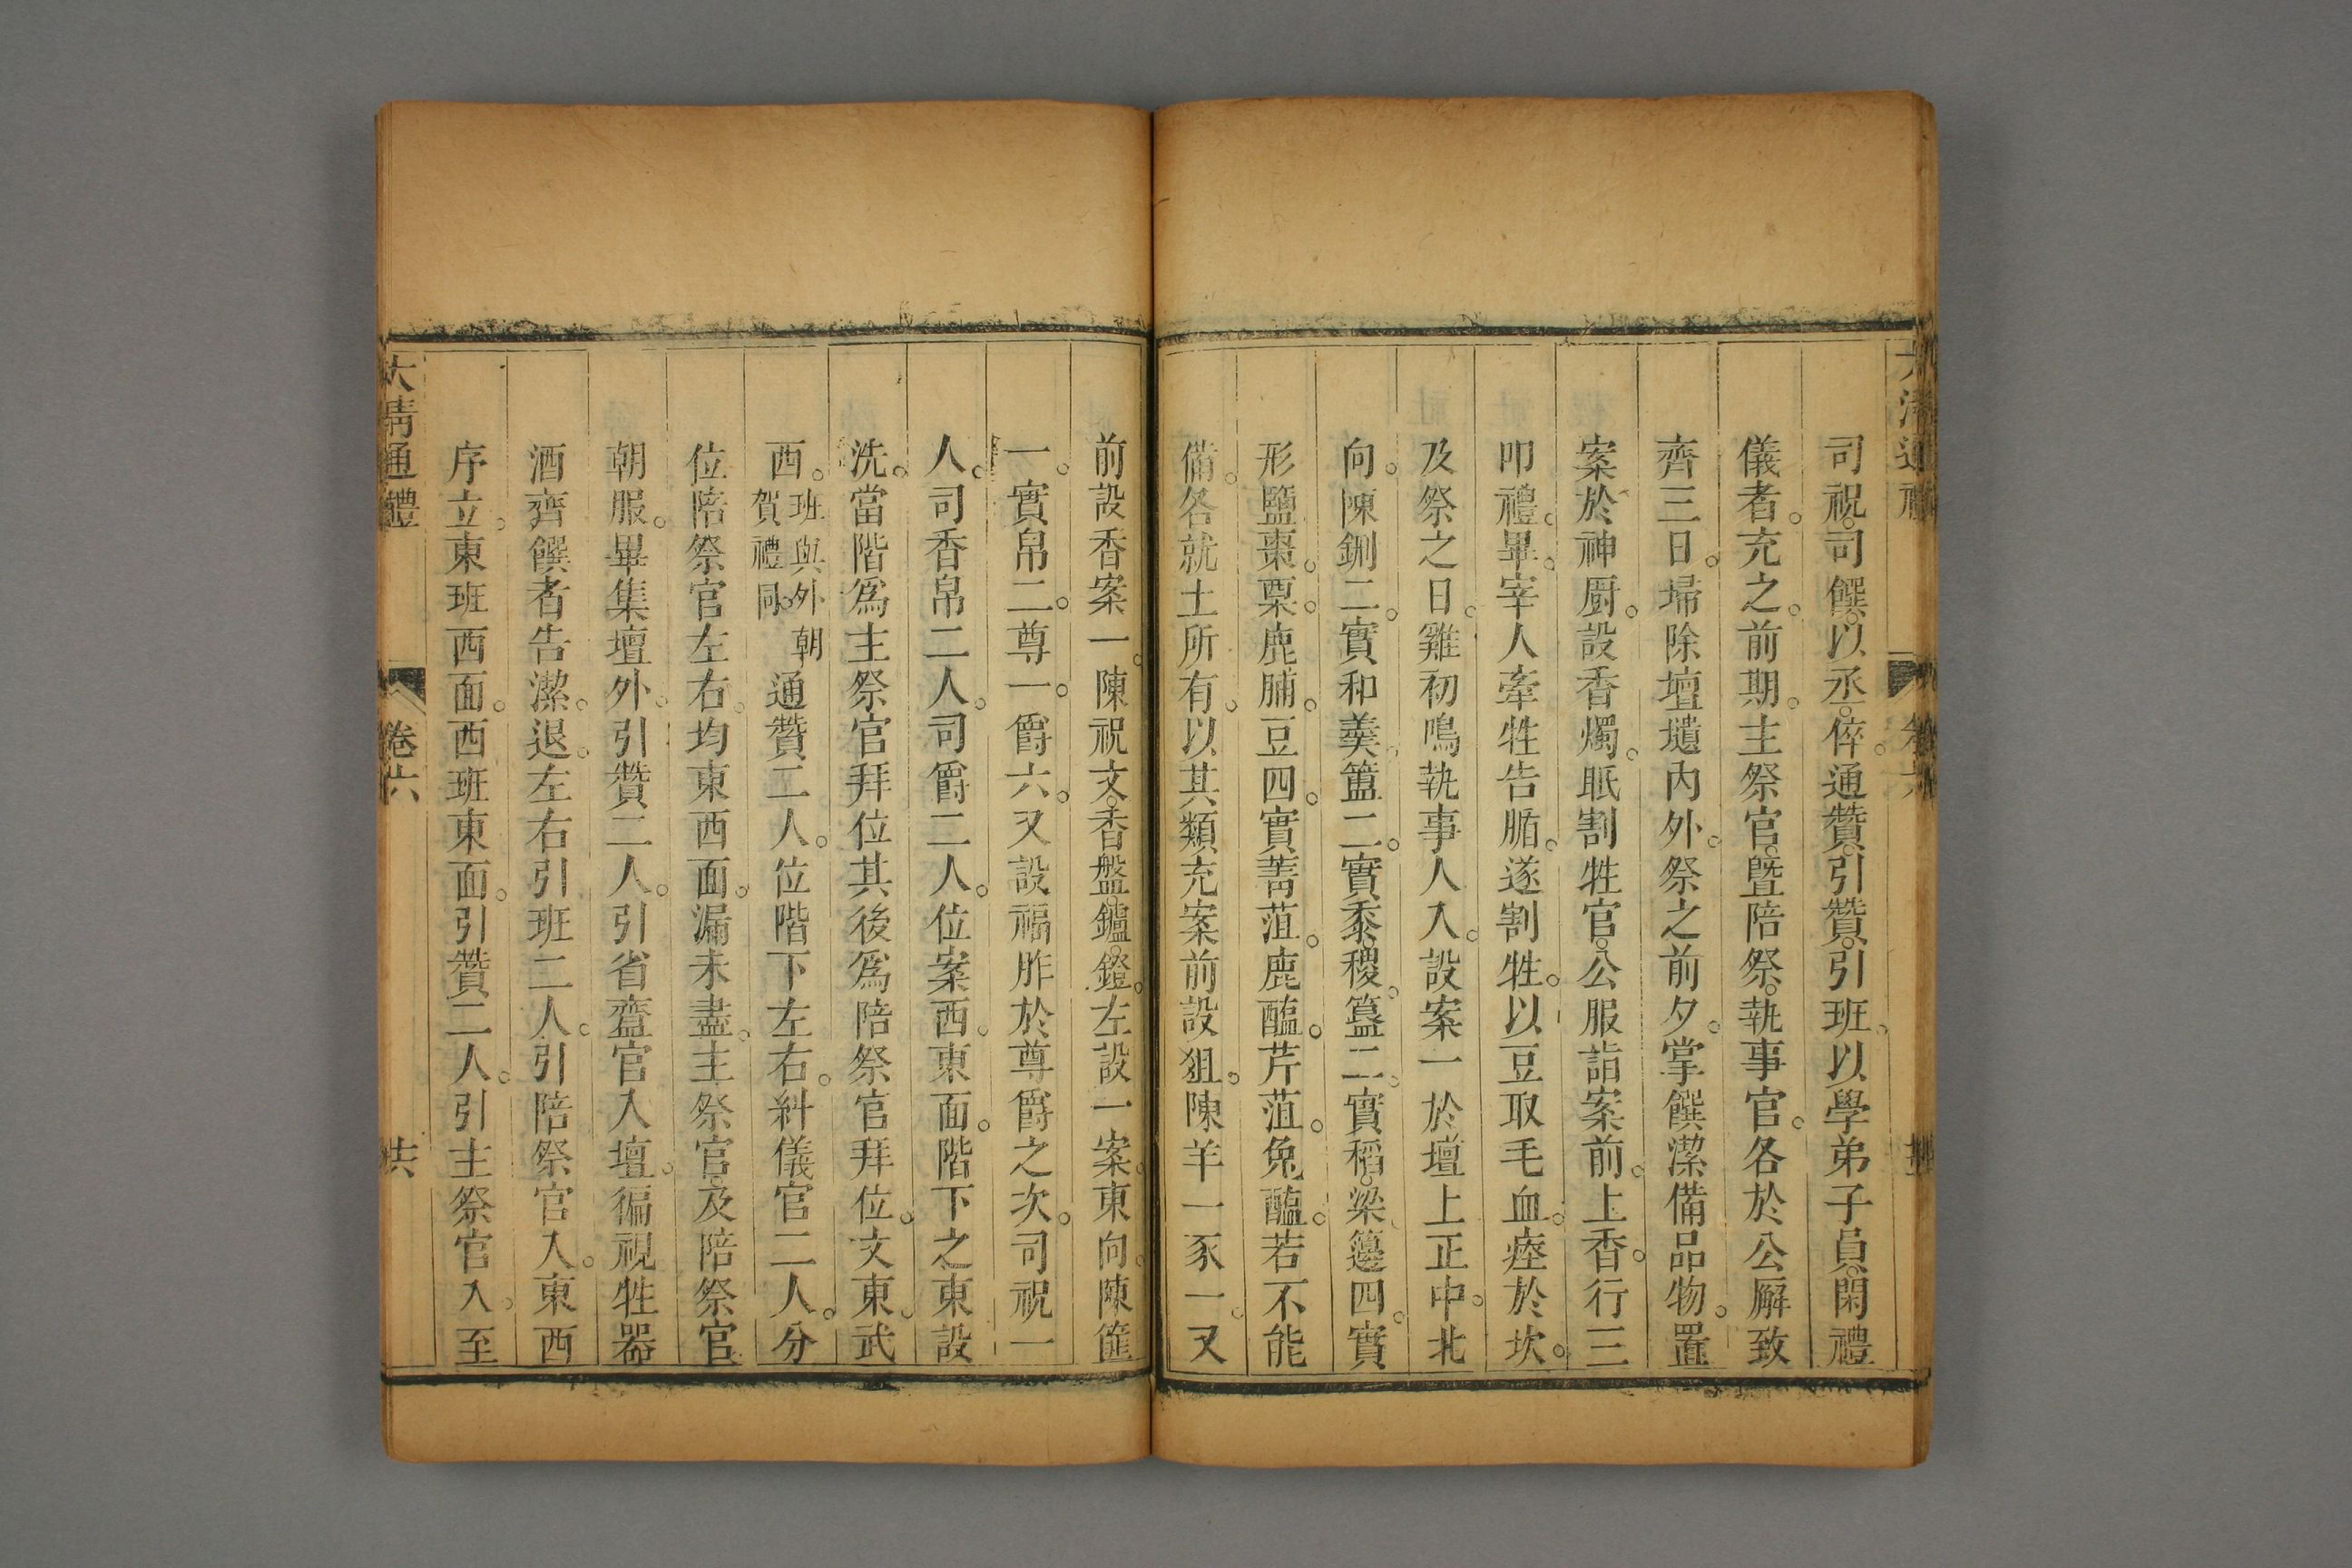 司祝。司饌。以丞。倅。通贊。引贊。引班。以學弟子員。閑禮
儀者。充之。前期。主祭官。曁陪祭。執事官。各於公廨致
齊三日。埽除壇壝內外。祭之前夕。掌饌潔備品物。置
案於神厨。設香燭。眂割牲官。公服詣案前。上香。行三
叩禮。畢。宰人牽牲告腯。遂割牲。以豆取毛血。瘞於坎。
及祭之日。雞初鳴執事人入。設案一於壇上正中。北
向。陳鉶二。實和羹。簠二。實黍。稷。簋二。實稻。梁。籩四。實
形鹽。棗。栗。鹿脯。豆四。實菁菹。鹿醢。芹菹。兔醢。若不能
備。各就土所有。以其類充案前設狙。陳羊一豕一。又
前設香案一。陳祝文。香盤。鑪。鐙。左設一案。東向。陳篚
一。實帛二。尊一。爵六。又設福胙於尊爵之次。司祝一
人。司香帛二人。司爵二人。位案西。東面。階下之東設
洗。當階爲主祭官拜位其後爲陪祭官拜位。文東。武
西。班與外朝賀禮同。通贊二人。位階下左右。糾儀官二人。分
位陪祭官左右。均東西面。漏未盡。主祭官。及陪祭官
朝服。畢集壇外。引贊二人。引省齍官入壇。徧視牲器
酒齊饌者告潔。退。左右引班二人。引陪祭官入。東西
序立。東班西面。西班東面。引贊二人。引主祭官入。至
大淸通禮
卷六